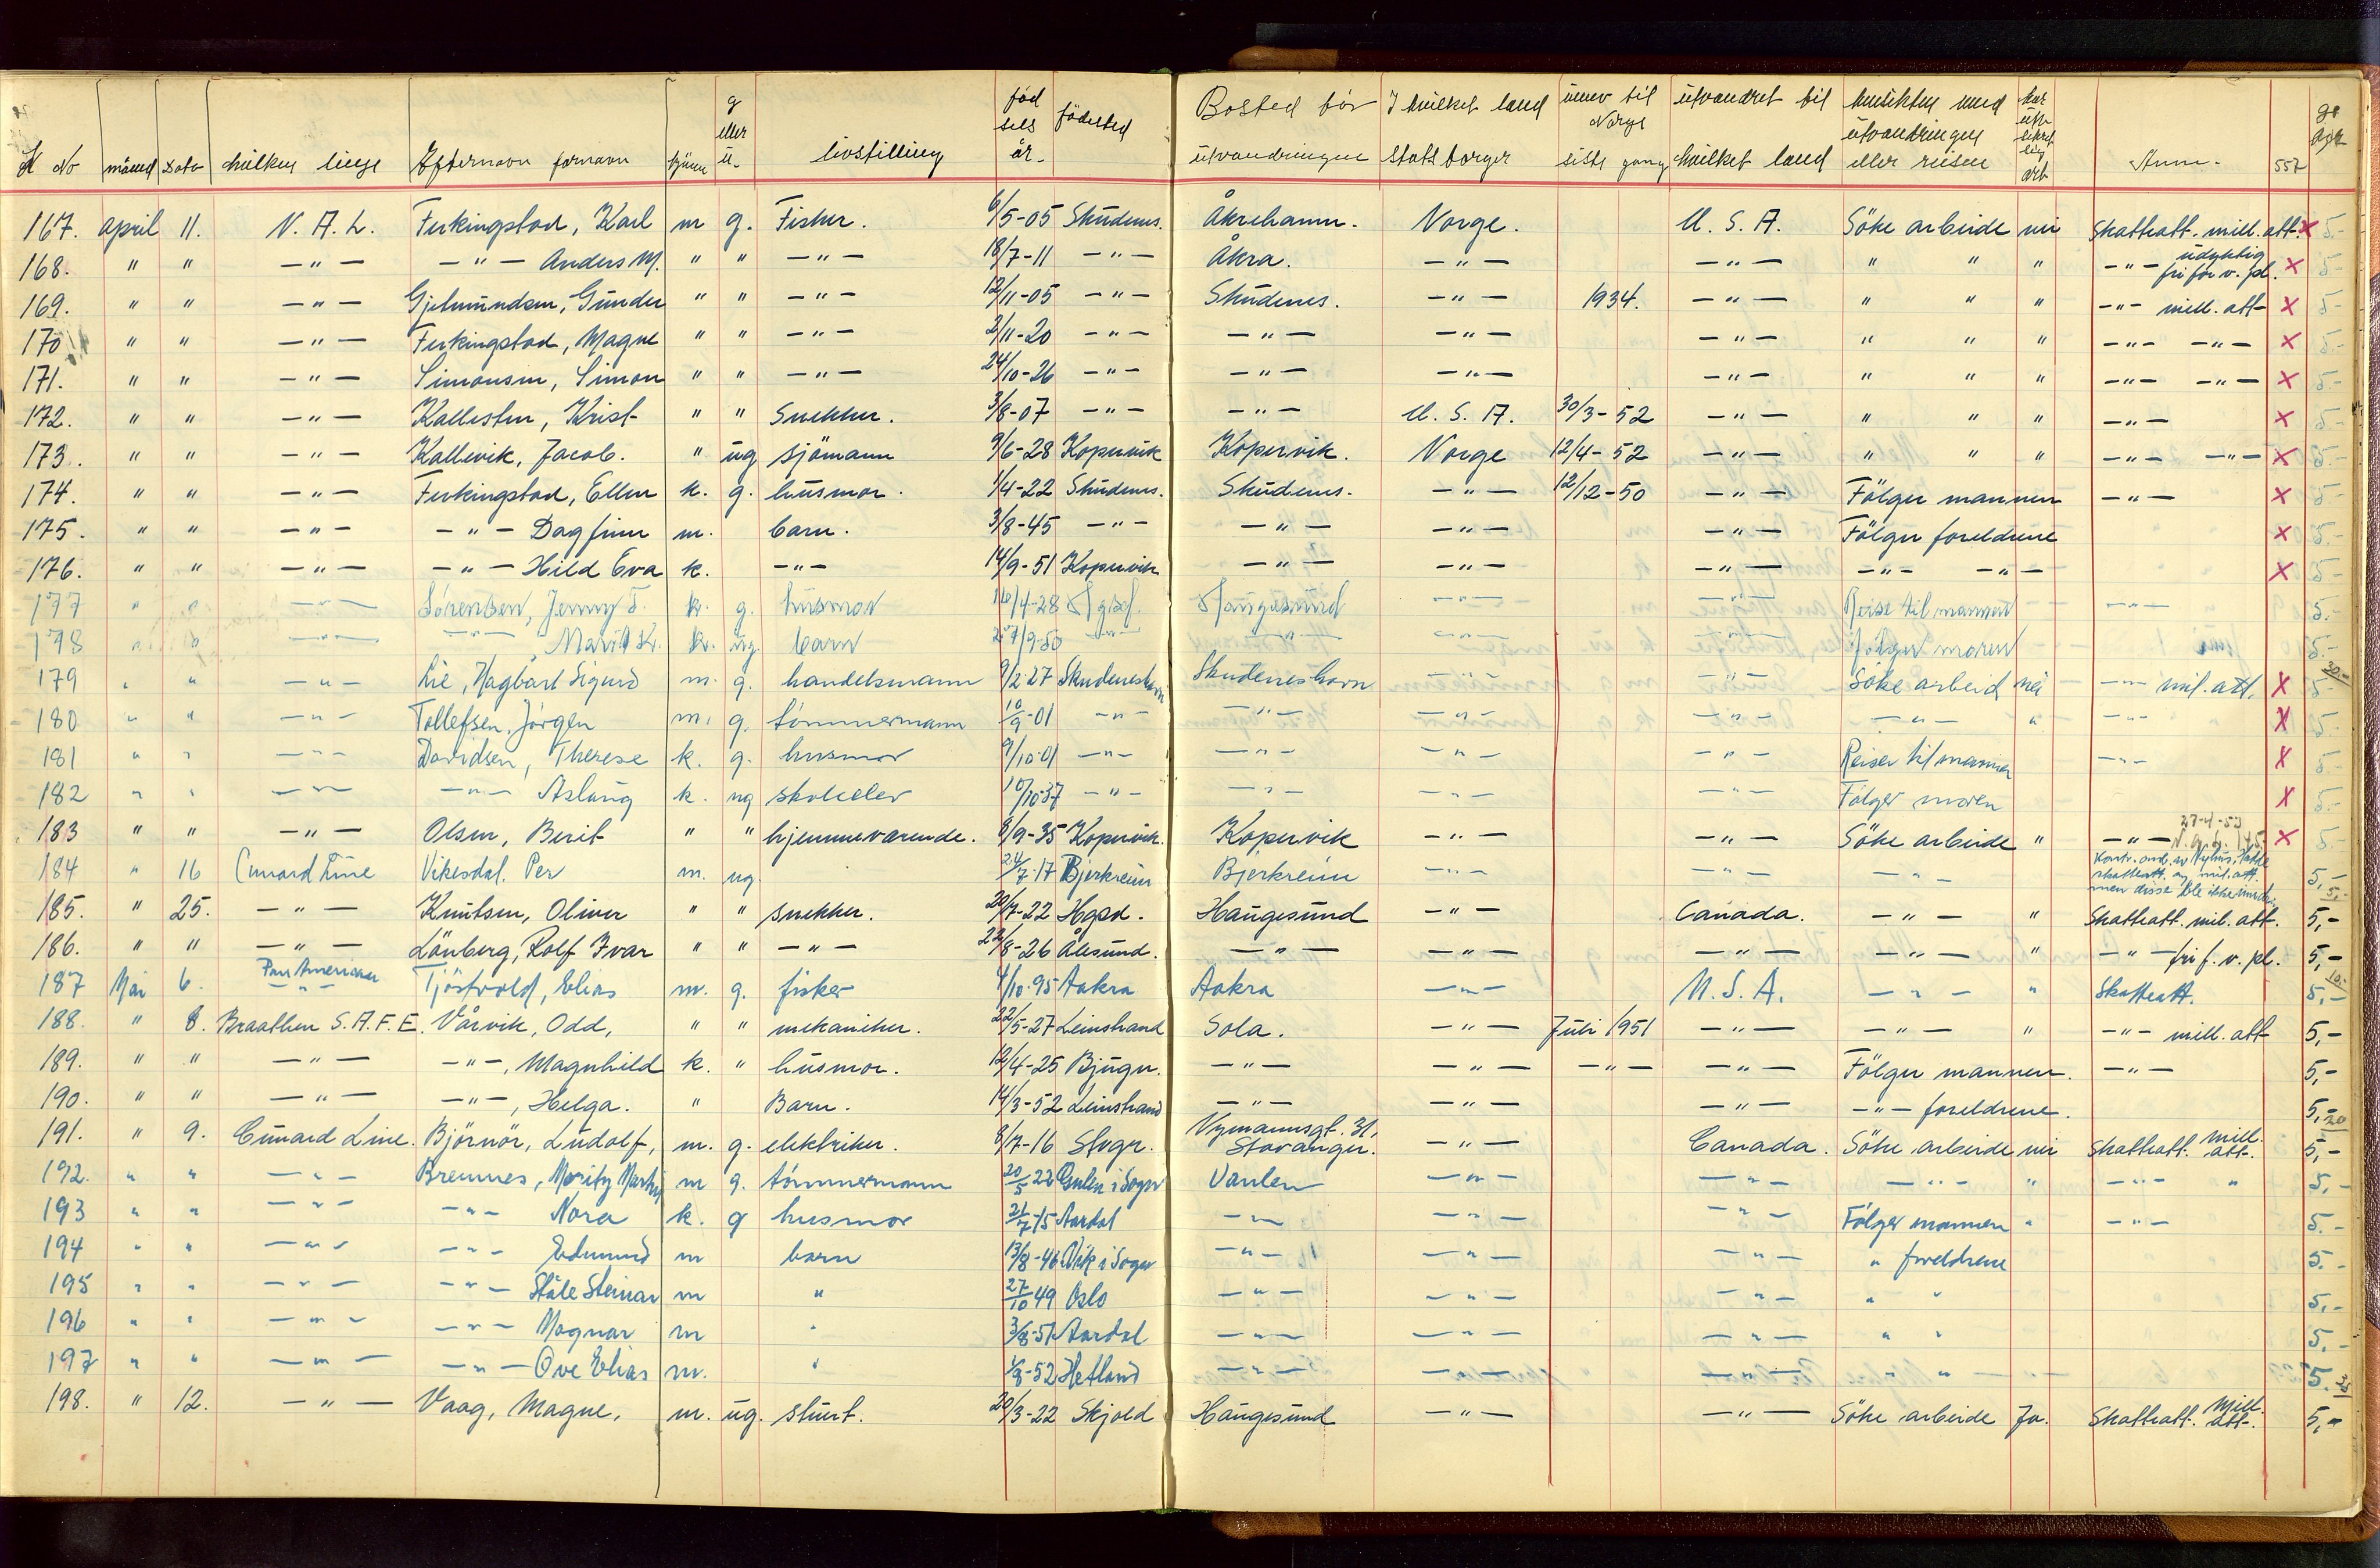 No måned Dato hvilken linje Efternavn fornavn kjönn g eller u. livstilling fød sels år- födested Bosted för utvandringen I hvilket land statsborger innv til Norge siste gang utvandret til hvilket land hensikten med utvandringen eller reisen Anm- 557
167. april 11. N. A. L. Ferkingstad, Karl m g. Fisker. 6/5-05 Skudenes. Åkrehamn. Norge. U. S. A. Söke arbeide nei Skatteatt. mill. att. x 5.-
168. " " -"- -"- Anders M. " " -"- 18/7-11 -"- Åkra. -"- -"- " " " -"- udyktig fri for v. pl. x 5-
169. " " -"- Gjelmundsen, Gunder " " -"- 12/11-05 -"- Skudenes. -"- 1934. -"- " " " -"- mill. att- x 5-
170 " " -"- Ferkingstad, Magne " " -"- 2/11-20 -"- -"- -"- -"- " " " -"- -"- x 5.-
171. " " -"- Simonsen, Simon " " -"- 24/10-26 -"- -"- -"- -"- " " " -"- -"- x 5-
172. " " -"- Kallesten, Krist " " Snekker. 3/8-07 -"- -"- U. S. A. 30/3-52 -"- " " " -"- x 5-
173. " " -"- Kallevik, Jacob. " ug sjömann 9/6-28 Kopervik Kopervik. Norge 12/4-52 -"- " " " -"- -"- x 5.-
174. " " -"- Ferkingstad, Ellen k. g. husmor. 1/4-22 Skudenes. Skudenes. -"- 12/12-50 -"- Fölger mannen -"- x 5-
175. " " -"- -"- Dagfinn m. barn. 3/8-45 -"- -"- -"- -"- Fölger foreldrene x 5.-
176. " " -"- -"- Hild Eva k. -"- 14/9-51 Kopervik -"- -"- -"- -"- -"- x 5-
177 " " -"- Sørensen, Jenny T. k. g. husmor 16/4-28 Hgsd. Haugesund -"- -"- Reise til mannen -"- 5.-
178 " " -"- -"- Marit Kr. k. ug. barn 27/9-50 -"- -"- -"- -"- Følger moren 5.-
179 " " -"- Lie, Hagbart Sigurd m. g. handelsmann 9/2-27 Skudeneshavn Skudeneshavn -"- -"- Söke arbeid nei -"- mil. att. x 5- 30.-
180 " " -"- Tollefsen, Jörgen m. g. tömmermann 10/9-01 -"- -"- -"- -"- -"- " -"- x 5-
181 " " -"- Davidsen, Therese k. g. husmor 9/10-01 -"- -"- -"- -"- Reiser til mannen -"- x 5-
182 " " -"- -"- Aslaug k. ug skoleelev 10/10-37 -"- -"- -"- -"- Følger moren x 5.-
183 " " -"- Olsen, Berit " " hjemmeværende. 8/9-35 Kopervik. Kopervik -"- -"- Söke arbeide " -"- 27-4-53 x 5-
184 " 16 Cunard Line Vikesdal. Per m. ug. 24/7-17 Bjerkreim Bjerkreim -"- -"- -"- skatteatt. og mil. att. men disse ble ikke 5,-
185. " 25. -"- Knutsen, Oliver " " snekker. 20/7-22 Hgsd. Haugesund -"- Canada. -"- " Skatteatt. mil. att. 5,- 5,-
186. " " -"- Lönberg, Rolf Ivar " " -"- 22/8-26 Ålesund. -"- -"- -"- -"- " -"- fri f. v. pl. 5,-
187 Mai 6. Pan American -"- Tjöstvold, Elias m. g. fisker 4/10-95 Aakra Aakra -"- U. S. A. -"- " Skatteatt. 5,- 10.-
188. " 8. Braathen S.A.F.E. Vårvik, Odd, " " mekaniker. 22/5-27 Leinstrand Sola. -"- Juli 1951 -"- -"- " -"- mill. att 5,-
189. " " -"- -"-, Magnhild k. " husmor. 12/4-25 Bjugn. -"- -"- -"- -"- Fölger mannen. -"- 5,-
190. " " -"- -"-, Helga. " Barn. 14/3-52 Leinstrand -"- -"- -"- -"- foreldrene. 5,- 20
191. " 9. Cunard Line. Björnör, Ludolf, m. g. elektriker. 8/7-16 Stvgr. Nymannsgt. 31, Stavanger. -"- Canada. Söke arbeide nei Skatteatt. mill. att. 5,-
192. " " -"- Bremnes, Moritz Martin m g. tömmermann 20/5 22 Gulen i Sogn Vaulen -"- -"- -"- " -"- " 5.-
193 " " -"- -"- Nora k. g husmor 21/7-15 Aardal -"- -"- -"- Fölger mannen " -"- 5.-
194 " " -"- -"- Edmund m barn 13/8-46 Vik i Sogn -"- -"- -"- " foreldrene 5.-
195 " " -"- -"- Ståle Steinar m " 27/10 49 Oslo -"- -"- -"- " " 5.-
196 " " -"- -"- Magnar m " 3/8-51 Aardal -"- -"- -"- " " 5.-
197 " " -"- -"- Ove Elias m. " 1/8-52 Hetland -"- -"- -"- " " 5.
198. " 12. -"- Vaag, Magne, m. ug. stuert. 20/3-22 Skjold Haugesund -"- -"- Söke arbeide Ja. Skatteatt. Mill. att. 5,-